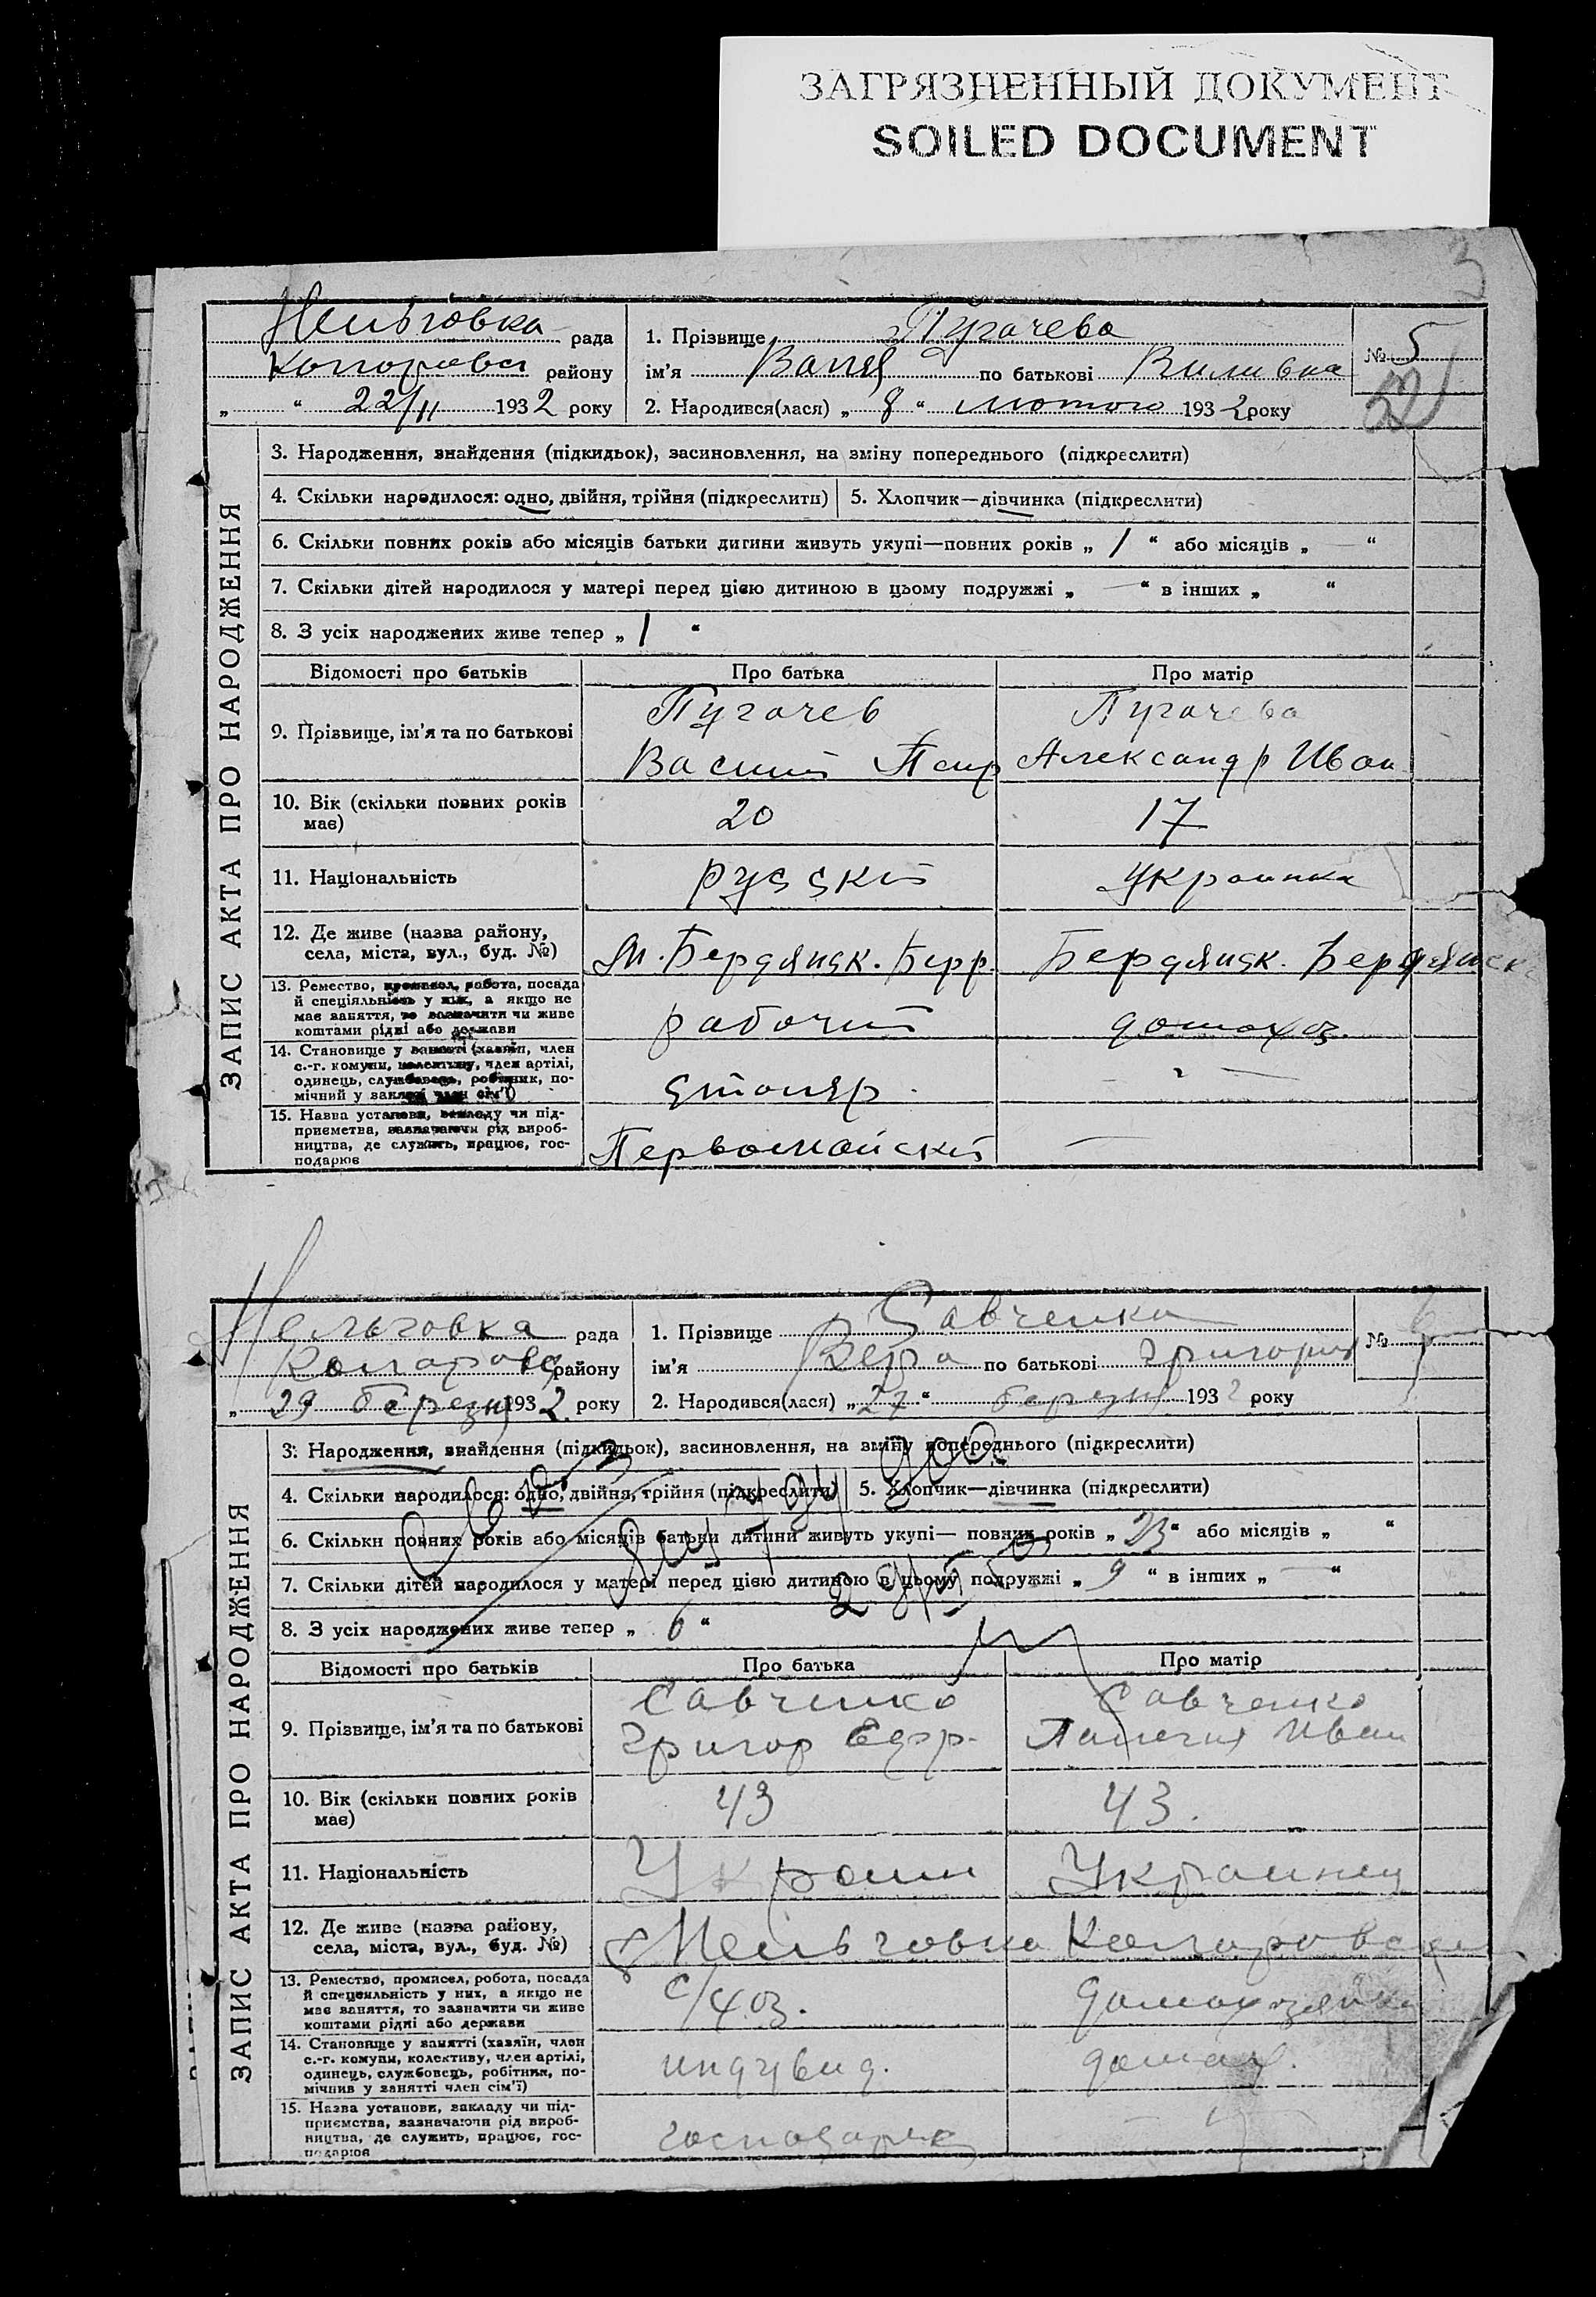 ЗАГРЯЗНЕННЫЙ ДОКУМЕНТ
SOILED DOCUMENT
3
ЗАПИС АКТА ПРО НАРОДЖЕННЯ
Нельговка рада
района
„ “ 22/II 1932 року
1. Прізвище Пугачева
ім'я Валя по батькові
2. Народився(лася) „ 8 “ лютого 1932 року
№ 5
3. Народження, знайдення (підкидьок), засиновлення, на зміну попереднього (підкреслити)
4. Скільки народилося: одно, двійня, трійня (підкреслити)
5. Хлопчик—дівчинка (підкреслити)
6. Скільки повних років або місяців батьки дитини живуть укупі—повних років „ 1 “ або місяців „ — “
7. Скільки дітей народилося у матері перед цією дитиною в цьому подружжі „ — “ в інших „ “
8. З усіх народжених живе тепер „ 1 “
Відомості про батьків Про батька Про матір
9. Прізвище, ім'я та по батькові
Пугачев Пугачева
Александр Иван
10. Вік (скільки повних років має) 20 17
11. Національність русский украинка
12. Де живе (назва району, села, міста, вул., буд. №)
м. Бердянск. Берд. Бердянск. Бердянск
13. Ремество, промисел, робота, посада
й спеціяльність у них, а якщо не
має заняття, то зазначити чи живе
коштами рідні або держави
рабочий домохоз.
14. Становище у занятті (хазяїн, член
с.-г. комуни, колективу, член артілі,
одинець, службовець, робітник, по-
мічний у занятті член сім'ї)
столяр.
15. Назва установи, закладу чи під-
приємства, зазначаючи рід вироб-
ництва, де служить, працює, гос-
подарює
Первомайский —
ЗАПИС АКТА ПРО НАРОДЖЕННЯ
Нельговка рада
району
„ 29 березня 1932 року
1. Прізвище Савченко
ім'я Вера по батькові Григорів
2. Народився(лася) „ 27 “ березня 1932 року
№ 6
3. Народження, знайдення (підкидьок), засиновлення, на зміну попереднього (підкреслити)
4. Скільки народилося: одно, двійня, трійня (підкреслити)
5. Хлопчик—дівчинка (підкреслити)
6. Скільки повних років або місяців батьки дитини живуть укупі— повних років „ 23 “ або місяців „ “
7. Скільки дітей народилося у матері перед цією дитиною в цьому подружжі „ 9 “ в інших „ — “
8. З усіх народжених живе тепер „ 6 “
Відомості про батьків Про батька Про матір
9. Прізвище, ім'я та по батькові
Савченко Савченко
Григор Иван
10. Вік (скільки повних років має) 43 43.
11. Національність
12. Де живе (назва району, села, міста, вул., буд. №)
Нельговка
13. Ремество, промисел, робота, посада
й спеціяльність у них, а якщо не
має заняття, то зазначити чи живе
коштами рідні або держави
домохозяйка
14. Становище у занятті (хазяїн, член
с.-г. комуни, колективу, член артілі,
одинець, службовець, робітник, по-
мічний у занятті член сім'ї)
индувид. домах.
15. Назва установи, закладу чи під-
приємства, зазначаючи рід вироб-
ництва, де служить, працює, гос-
подарює